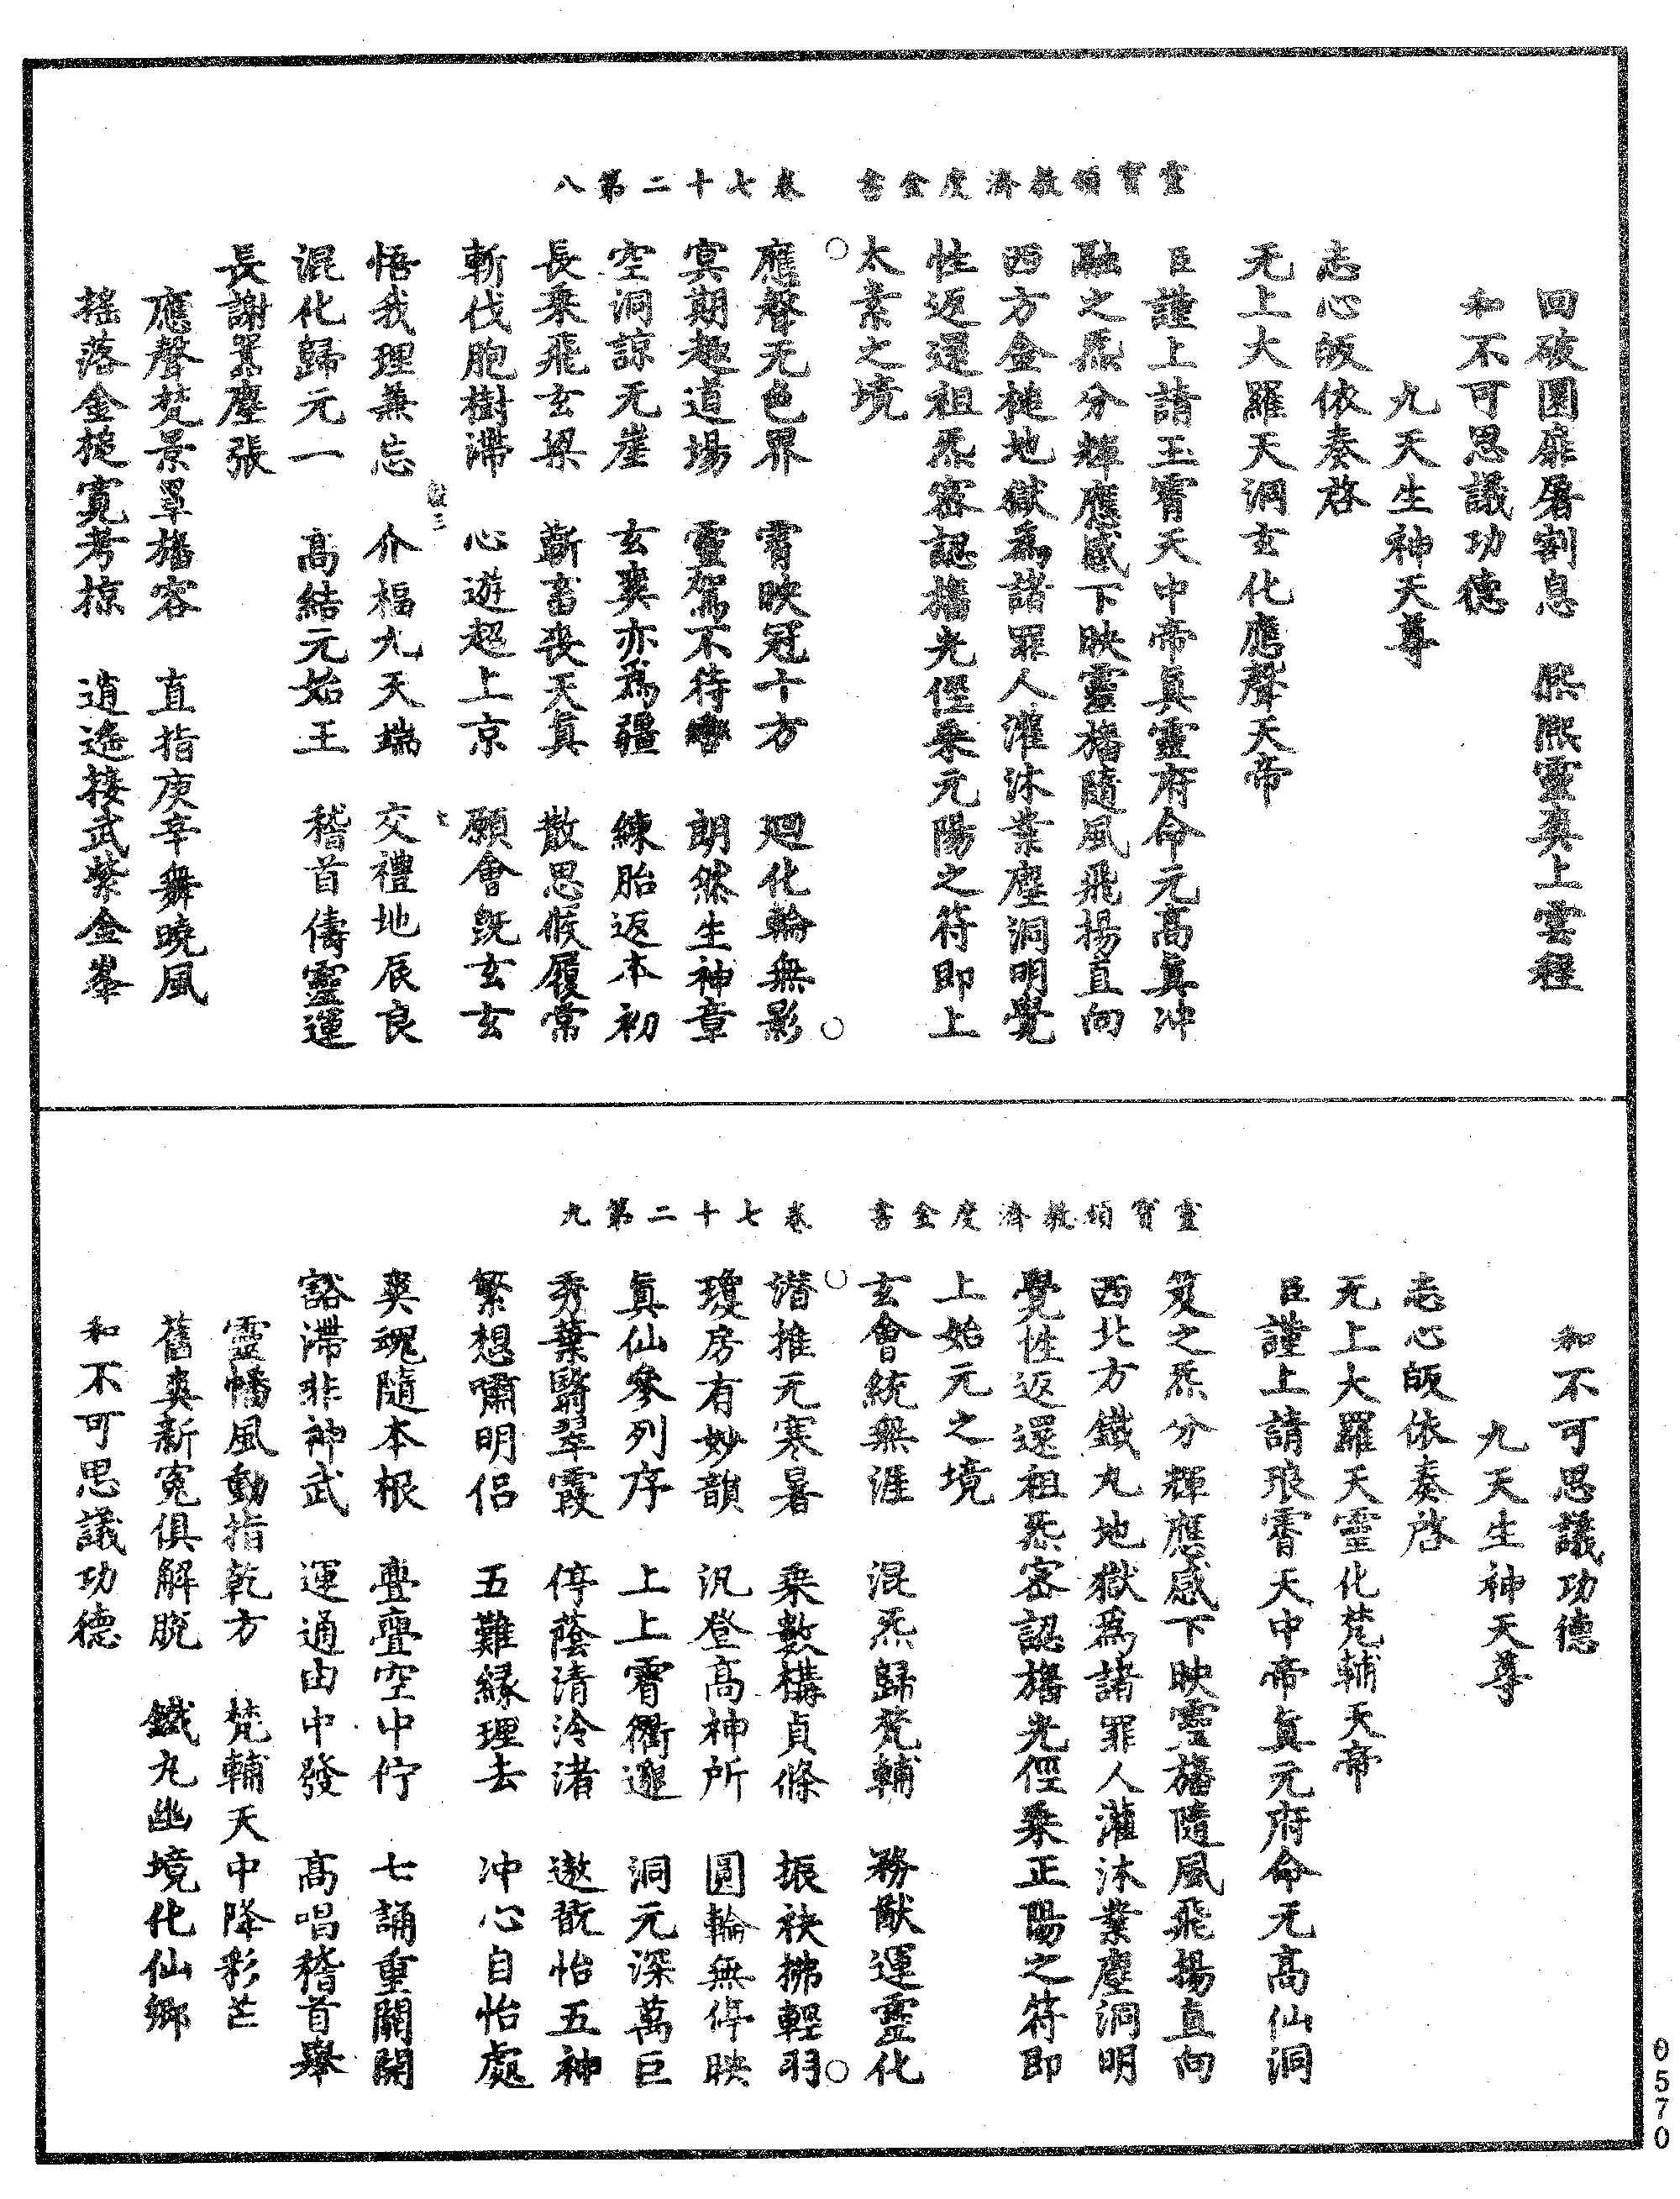 靈寶領教濟度金書　卷七十二第八
回破團扉屠割息　熙熙靈爽上雲程
和不可思議功德
九天生神天尊
志心皈依奏啓
无上大羅天洞玄化應聲天帝
臣謹上請玉霄天中帝真靈府命元高真冲
融之炁分輝應感下映靈旛隨風飛揚直向
西方金槌地獄為諸罪人灌沐業塵洞明覺
性返還祖炁密認旛光徑乘元陽之符即上
太素之境
應聲无色界　霄映冠十方　廻化輪無影
冥期趣道場　靈駕不待轡　朗然生神章
空洞諒无崖　玄爽亦為疆　練胎返本初
長乘飛玄梁　蘄畜喪天真　散思候履常
斬伐胞樹滯　心遊超上京　願會既玄玄
悟我理兼忘　介福九天端　交禮地辰良
混化歸元一　高結元始王　稽首儔靈運
長謝囂塵張
應聲梵景罩旛容　直指庚辛舞曉風
搖落金槌寬考掠　逍遙接武紫金峯
靈寶領教濟度金書　卷七十二第九
和不可思議功德
九天生神天尊
志心皈依奏啓
无上大羅天靈化梵輔天帝
臣謹上請琅霄天中帝真元府命元高仙洞
笈之炁分輝應感下映靈旛隨風飛揚直向
西北方鐵丸地獄為諸罪人灌沐業塵洞明
覺性返還祖炁密認旛光徑乘正陽之符即
上始元之境
玄會統無涯　混炁歸梵輔　務猷運靈化
潛推无寒暑　乘數構貞條　振袂拂輕羽
瓊房有妙韻　汎登高神所　圓輪無停映
真仙參列序　上上霄衢邃　洞元深萬巨
秀葉翳翠霞　停蔭清泠渚　遨翫怡五神
繁想嘯明侶　五難緣理去　冲心自怡處
爽魂隨本根　亹亹空中佇　七誦重關開
豁滯非神武　運通由中發　高唱稽首舉
靈幡風動指乾方　梵輔天中降彩芒
舊爽新冤俱解脫　鐵丸幽境化仙鄉
和不可思議功德
0570